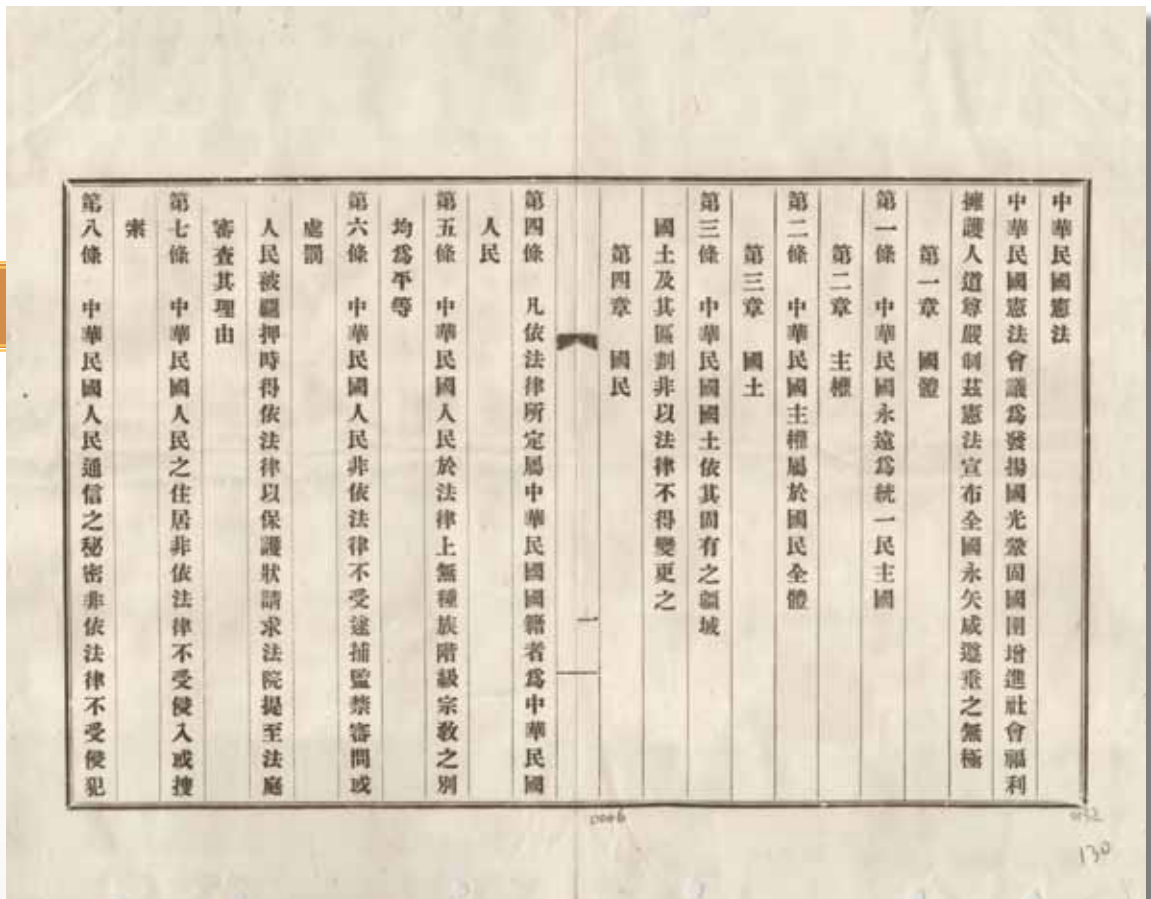 中華民國憲法
中華民國憲法會議爲發揚國光鞏固國圉增進社會福利
擁護人道尊嚴制茲憲法宣布全國永矢咸遵垂之無極
第一章　國體
第一條　中華民國永遠爲統一民主國
第二章　主權
第二條　中華民國主權屬於國民全體
第三章　國土
第三條　中華民國國土依其固有之疆域
國土及其區劃非以法律不得變更之
第四章　國民
一
第四條　凡依法律所定屬中華民國國籍者爲中華民國
人民
第五條　中華民國人民於法律上無種族階級宗教之別
均爲平等
第六條　中華民國人民非依法律不受逮捕監禁審問或
處罰
人民被羈押時得依法律以保護狀請求法院提至法庭
審查其理由
第七條　中華民國人民之住居非依法律不受侵入或搜
索
第八條　中華民國人民通信之秘密非依法律不受侵犯
130